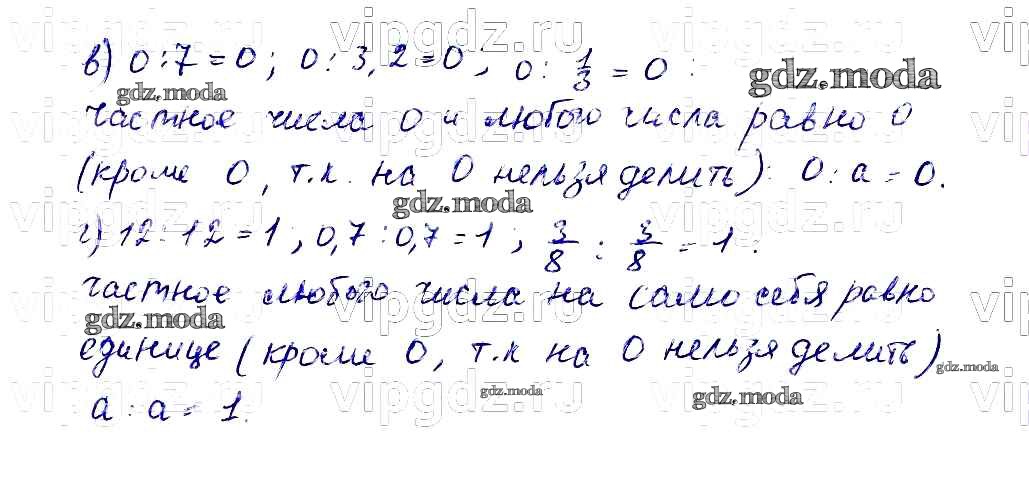 в) 0:7=0; 0:3,2=0; 0: 1/3 = 0:
частное числа 0 и любого числа равно 0
(кроме 0, т.к. на 0 нельзя делить): 0:a=0.
г) 12:12=1, 0,7:0,7=1, 3/8 : 3/8 = 1:
частное любого числа на само себя равно
единице (кроме 0, т.к на 0 нельзя делить)
a:a=1.
vipgdz.ru
gdz.moda